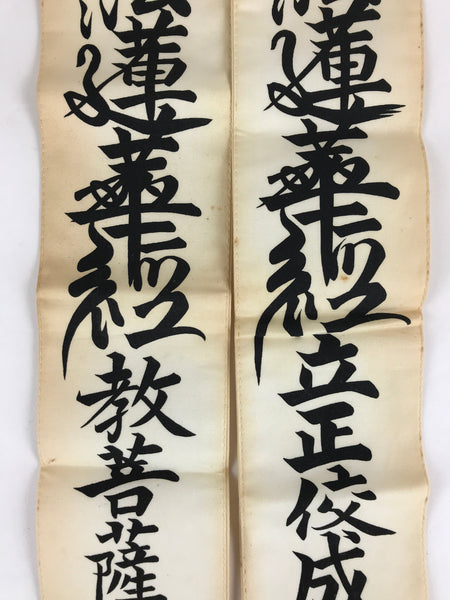 法蓮華経立正佼成
法蓮華経教菩薩